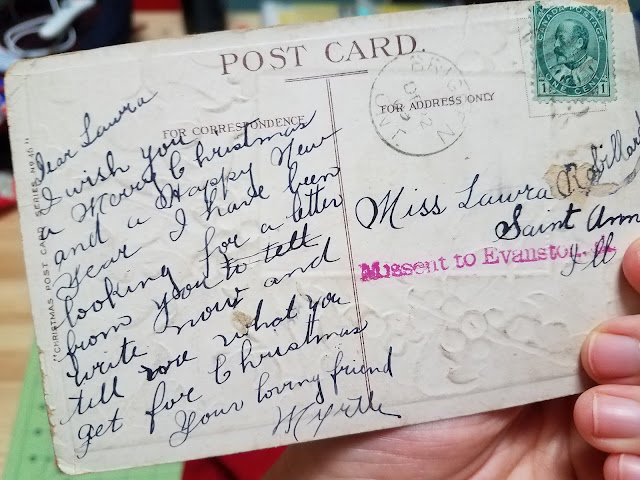 POST CARD.
FOR CORRESPONDENCE
FOR ADDRESS ONLY
"CHRISTMAS POST CARD SERIES NO.
Dear Laura
I wish you
a Merry Christmas
and a Happy New
Year I have been
looking for a letter
from you to tell
write now and
till me what you
get for Christmas
Your loving friend
Myrtle
CANADA POSTAGE
1 CENT 1
BRIGDEN
ONT
Miss Laura Robillard
Saint Ann
Ill
Missent to Evanston